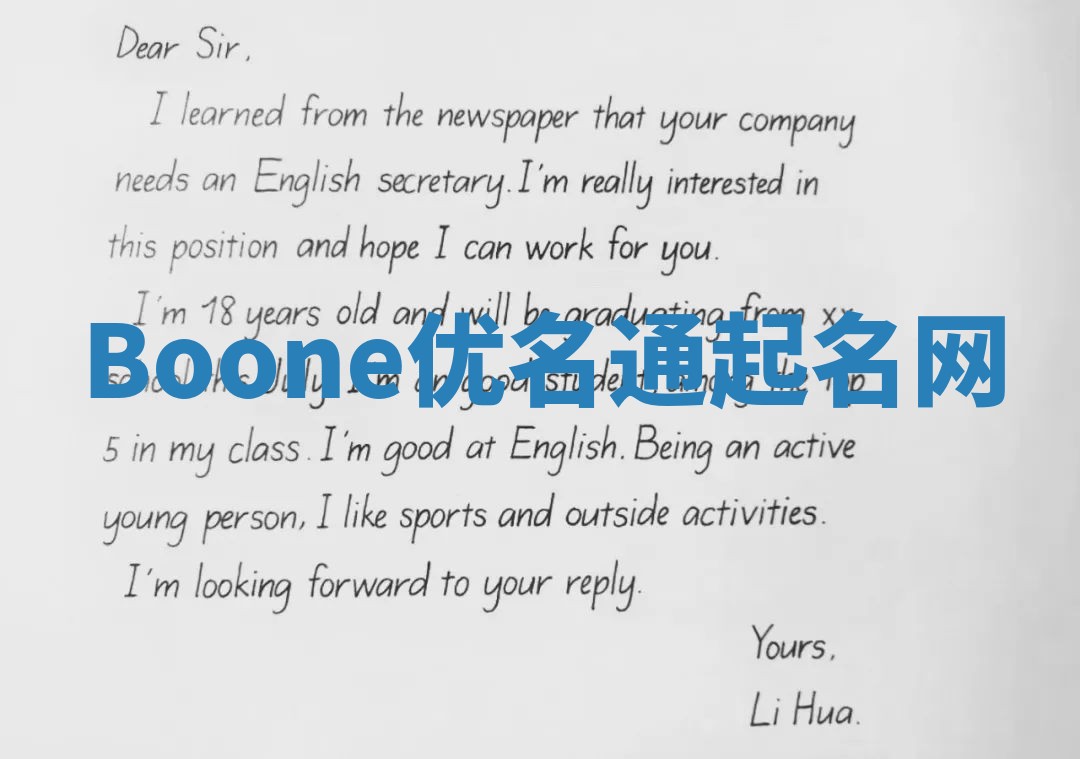 Dear Sir,
I learned from the newspaper that your company
needs an English secretary. I'm really interested in
this position and hope I can work for you.
I'm 18 years old and will be graduating from xx
Boone优名通起名网
school this July. I'm a good student, among the top
5 in my class. I'm good at English. Being an active
young person, I like sports and outside activities.
I'm looking forward to your reply.
Yours,
Li Hua.